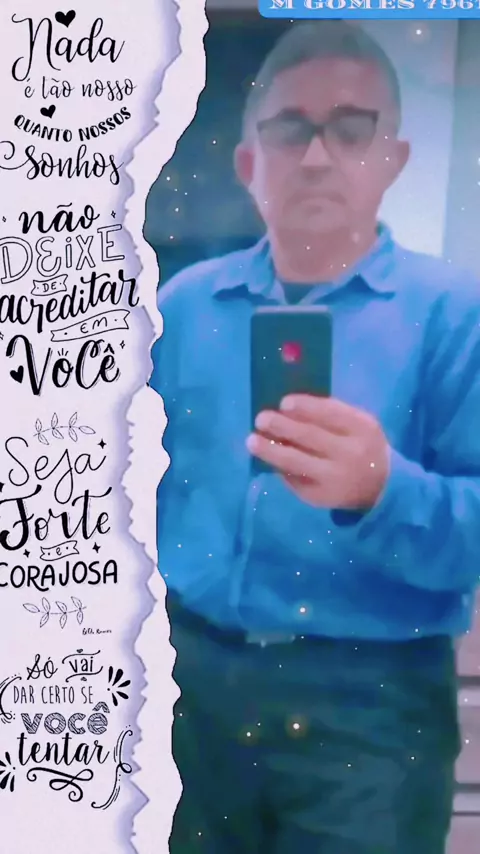 M GOMES 7961
Nada
é tão nosso
QUANTO NOSSOS
Sonhos
não
DEIXE
DE
acreditar
EM
VOCÊ
Seja
Forte
e
CORAJOSA
Só vai
DAR CERTO SE
VOCÊ
tentar